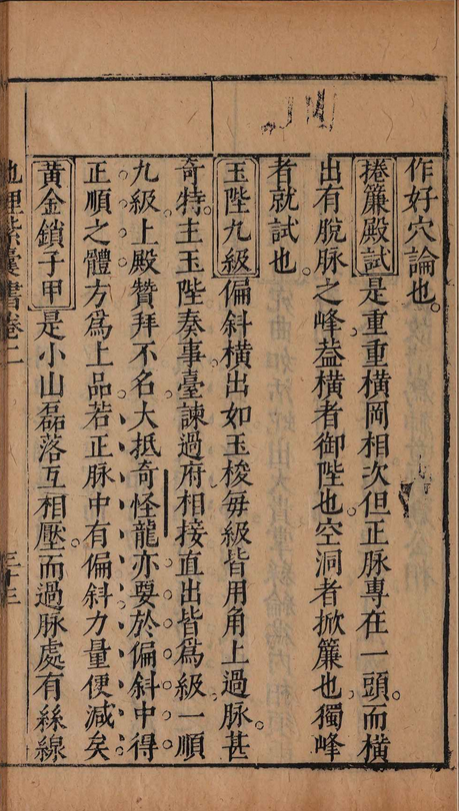 作好穴論也。
捲簾殿試是重重橫岡相次但正脉專在一頭。而橫
出有脫脉之峰葢橫者御陛也。空洞者掀簾也獨峰
者就試也。
玉陛九級偏斜橫出如玉梭每級皆用角上過脉。甚
奇特。主玉陛奏事臺諫過府相接直出皆爲級一順
九級上殿贊拜不名大抵奇怪龍亦要於偏斜中得
正順之體方爲上品若正脉中有偏斜力量便減矣
黃金鎖子甲是小山磊落互相壓。而過脉處有絲線
地理紫囊書卷二 三十三